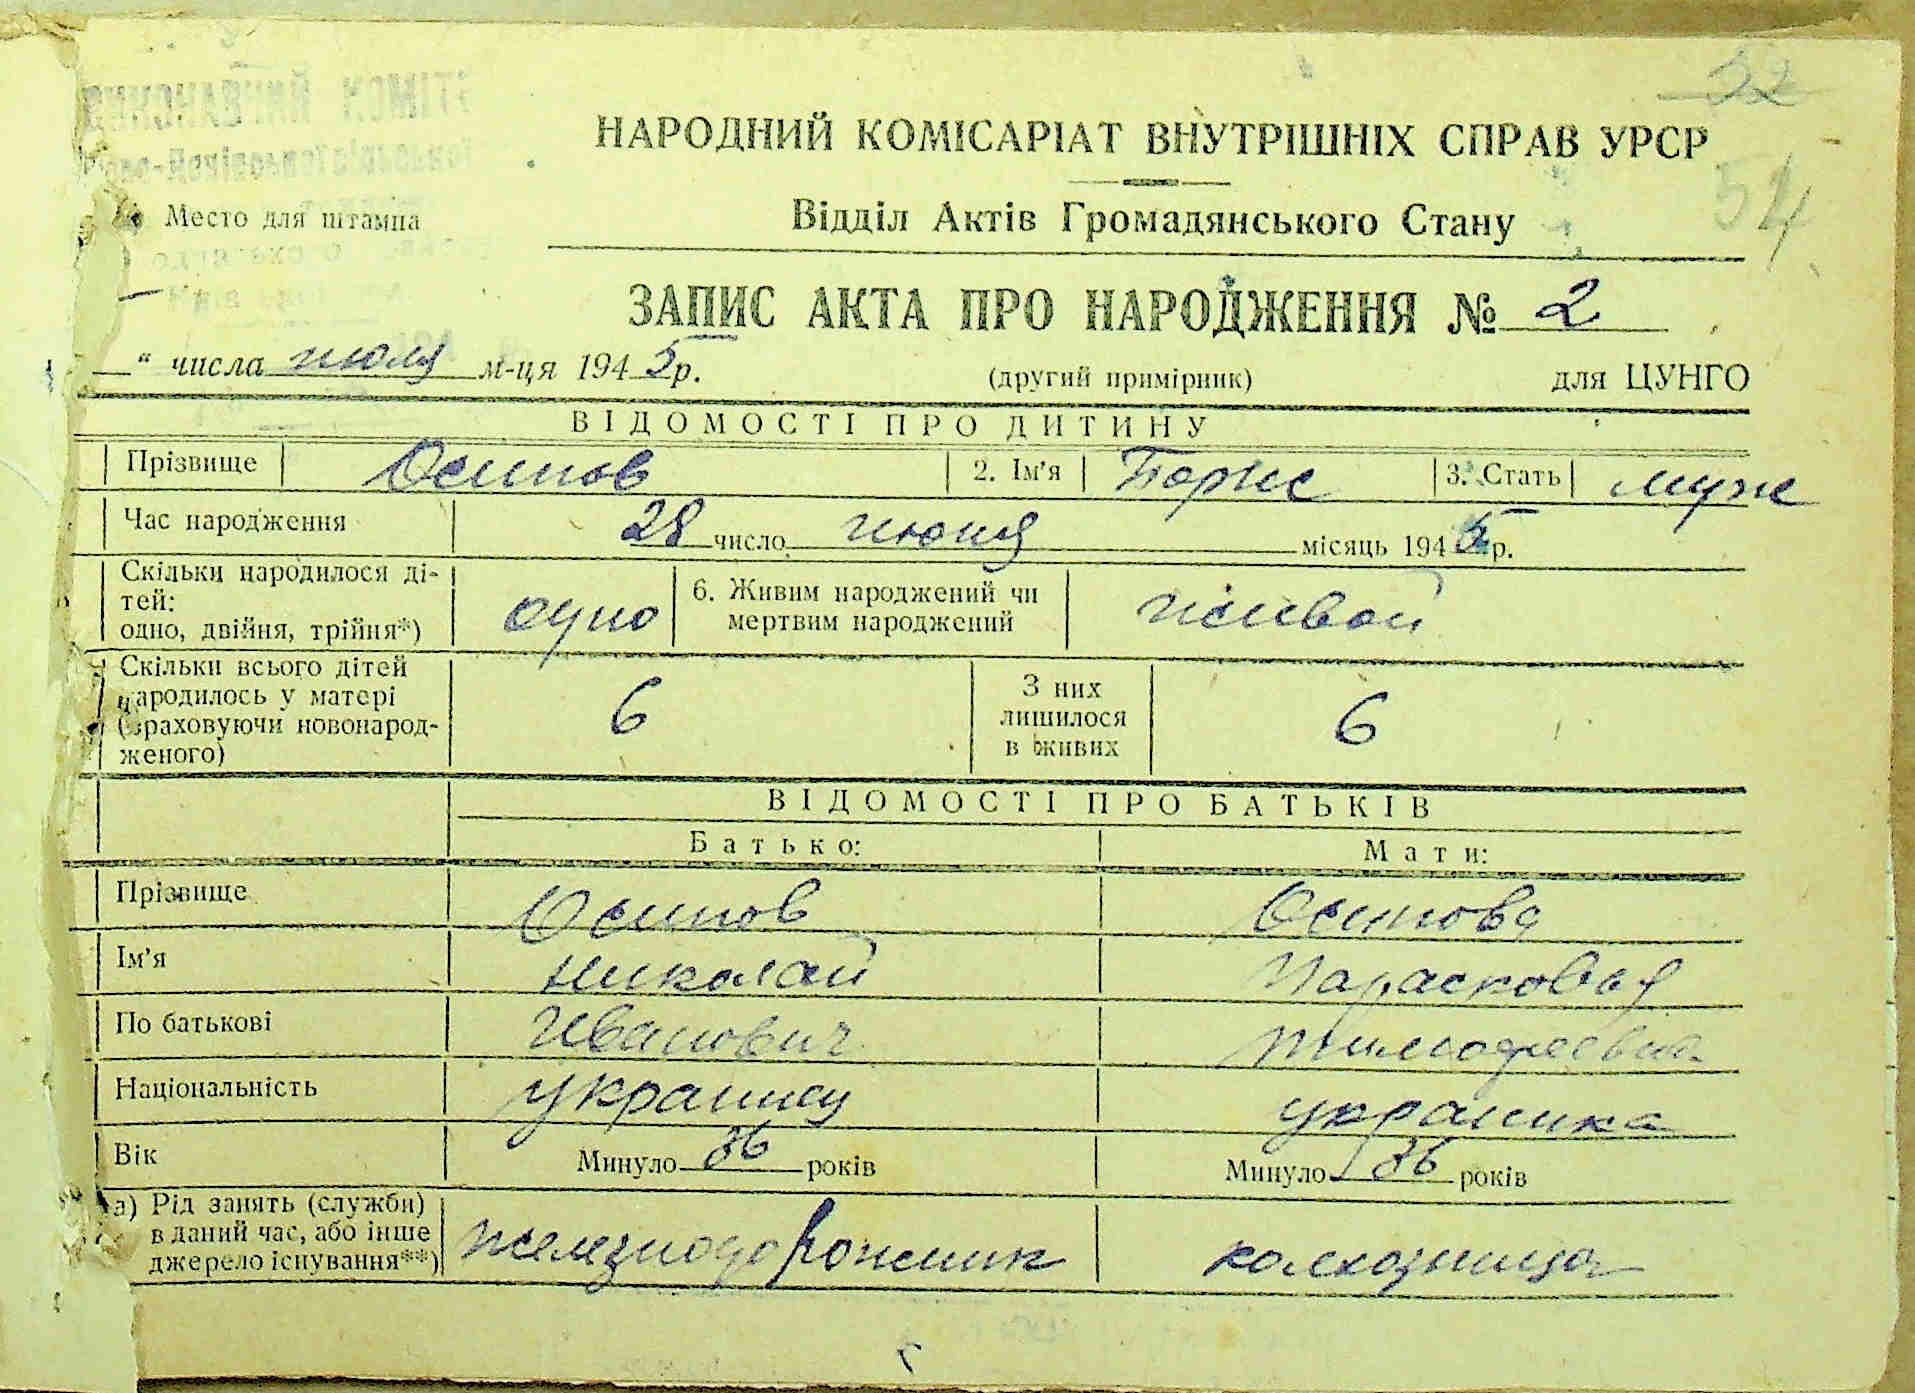 32
НАРОДНИЙ КОМІСАРІАТ ВНУТРІШНІХ СПРАВ УРСР
54
Место для штампа
Відділ Актів Громадянського Стану
ЗАПИС АКТА ПРО НАРОДЖЕННЯ № 2
“ числа июля м-ця 1945 р. (другий примірник) для ЦУНГО
ВІДОМОСТІ ПРО ДИТИНУ
Прізвище Осипов 2. Ім'я Борис 3. Стать муж
Час народження 28 число июня місяць 1945 р.
Скільки народилося ді-
тей:
одно, двійня, трійня*) одно 6. Живим народжений чи
мертвим народжений живой
Скільки всього дітей
народилось у матері
(враховуючи новонарод-
женого) 6 З них
лишилося
в живих 6
ВІДОМОСТІ ПРО БАТЬКІВ
Батько: Мати:
Прізвище Осипов Осипова
Ім'я Николай Парасковья
По батькові Иванович Тимофеевна
Національність украинец украинка
Вік Минуло 36 років Минуло 36 років
а) Рід занять (служби)
в даний час, або інше
джерело існування**) железнодорожник колхозница